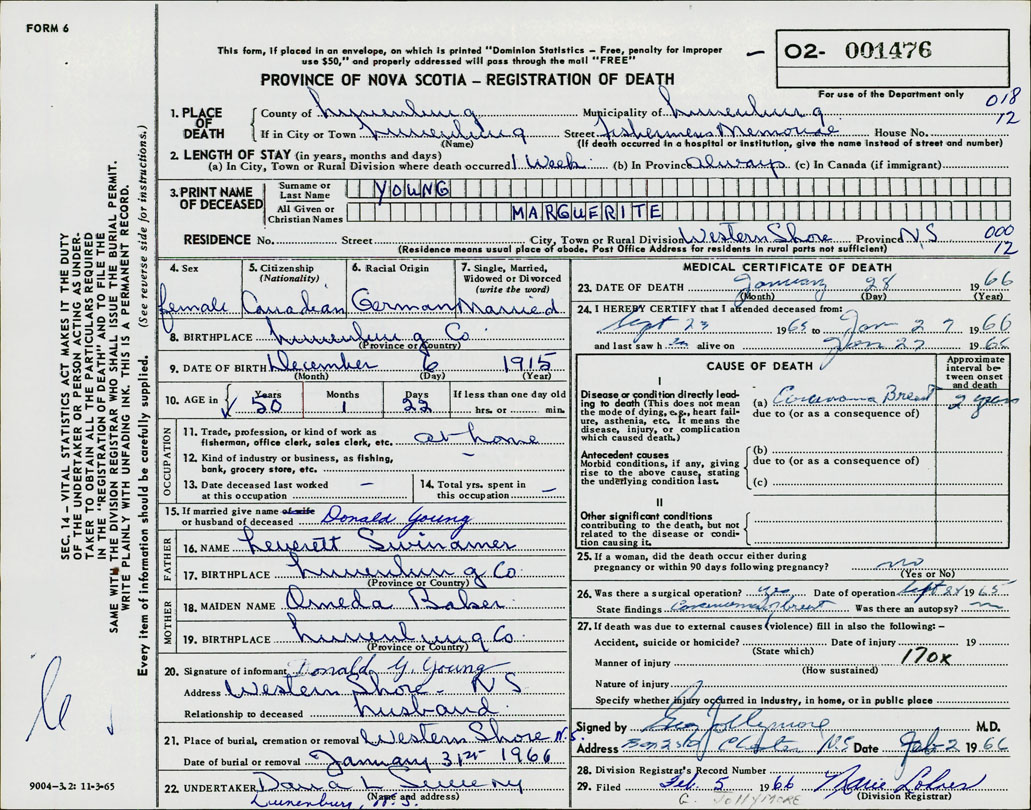 FORM 6
This form, if placed in an envelope, on which is printed "Dominion Statistics – Free, penalty for improper
use $50," and properly addressed will pass through the mail "FREE"
PROVINCE OF NOVA SCOTIA – REGISTRATION OF DEATH
O2- 001476
For use of the Department only
018
12
1. PLACE OF DEATH
County of Lunenburg Municipality of Lunenburg
If in City or Town Lunenburg Street Fishermens Memorial House No.
(Name) (If death occurred in a hospital or institution, give the name instead of street and number)
2. LENGTH OF STAY (in years, months and days)
(a) In City, Town or Rural Division where death occurred 1 Week (b) In Province Always (c) In Canada (if immigrant)
3. PRINT NAME OF DECEASED
Surname or Last Name YOUNG
All Given or Christian Names MARGUERITE
RESIDENCE No. Street City, Town or Rural Division Western Shore Province N.S
(Residence means usual place of abode. Post Office Address for residents in rural parts not sufficient)
000
12
4. Sex female
5. Citizenship (Nationality) Canadian
6. Racial Origin German
7. Single, Married, Widowed or Divorced (write the word) Married
8. BIRTHPLACE Lunenburg Co
(Province or Country)
9. DATE OF BIRTH December 6 1915
(Month) (Day) (Year)
10. AGE in Years 50 Months 1 Days 22 If less than one day old hrs. or min.
OCCUPATION
11. Trade, profession, or kind of work as fisherman, office clerk, sales clerk, etc. at home
12. Kind of industry or business, as fishing, bank, grocery store, etc. –
13. Date deceased last worked at this occupation –
14. Total yrs. spent in this occupation –
15. If married give name of wife or husband of deceased Donald Young
FATHER
16. NAME Leverett Swinamer
17. BIRTHPLACE Lunenburg Co.
(Province or Country)
MOTHER
18. MAIDEN NAME Omeda Baker
19. BIRTHPLACE Lunenburg Co.
(Province or Country)
20. Signature of informant Donald Y. Young
Address Western Shore - N S
Relationship to deceased husband
21. Place of burial, cremation or removal Western Shore N.S.
Date of burial or removal January 31st 1966
22. UNDERTAKER Dana L Sweeny
(Name and address)
Lunenburg, N.S.
MEDICAL CERTIFICATE OF DEATH
23. DATE OF DEATH January 28 1966
(Month) (Day) (Year)
24. I HEREBY CERTIFY that I attended deceased from:
Sept 23 1965 to Jan 27 1966
and last saw h er alive on Jan 27 1966
CAUSE OF DEATH
Approximate interval between onset and death
I
Disease or condition directly leading to death (This does not mean the mode of dying, e.g., heart failure, asthenia, etc. It means the disease, injury, or complication which caused death.)
(a) Carcinoma Breast 2 years
due to (or as a consequence of)
Antecedent causes
Morbid conditions, if any, giving rise to the above cause, stating the underlying condition last.
(b)
due to (or as a consequence of)
(c)
II
Other significant conditions
contributing to the death, but not related to the disease or condition causing it.
25. If a woman, did the death occur either during
pregnancy or within 90 days following pregnancy? no
(Yes or No)
26. Was there a surgical operation? yes Date of operation Sept 24 1965
State findings Carcinoma of breast Was there an autopsy? no
27. If death was due to external causes (violence) fill in also the following: –
Accident, suicide or homicide? Date of injury 19
(State which)
Manner of injury 170X
(How sustained)
Nature of injury
Specify whether injury occurred in industry, in home, or in public place
Signed by Geo Jollymore M.D.
Address Chester N.S Date Feb 2 1966
28. Division Registrar's Record Number
29. Filed Feb. 5 1966 Marie Lohnes
(Division Registrar)
G. JOLLYMORE
SEC. 14 – VITAL STATISTICS ACT MAKES IT THE DUTY
OF THE UNDERTAKER OR PERSON ACTING AS UNDER-
TAKER TO OBTAIN ALL THE PARTICULARS REQUIRED
IN THE "REGISTRATION OF DEATH" AND TO FILE THE
SAME WITH THE DIVISION REGISTRAR WHO SHALL ISSUE THE BURIAL PERMIT.
WRITE PLAINLY WITH UNFADING INK. THIS IS A PERMANENT RECORD.
Every item of information should be carefully supplied. (See reverse side for instructions.)
9004–3.2: 11-3-65